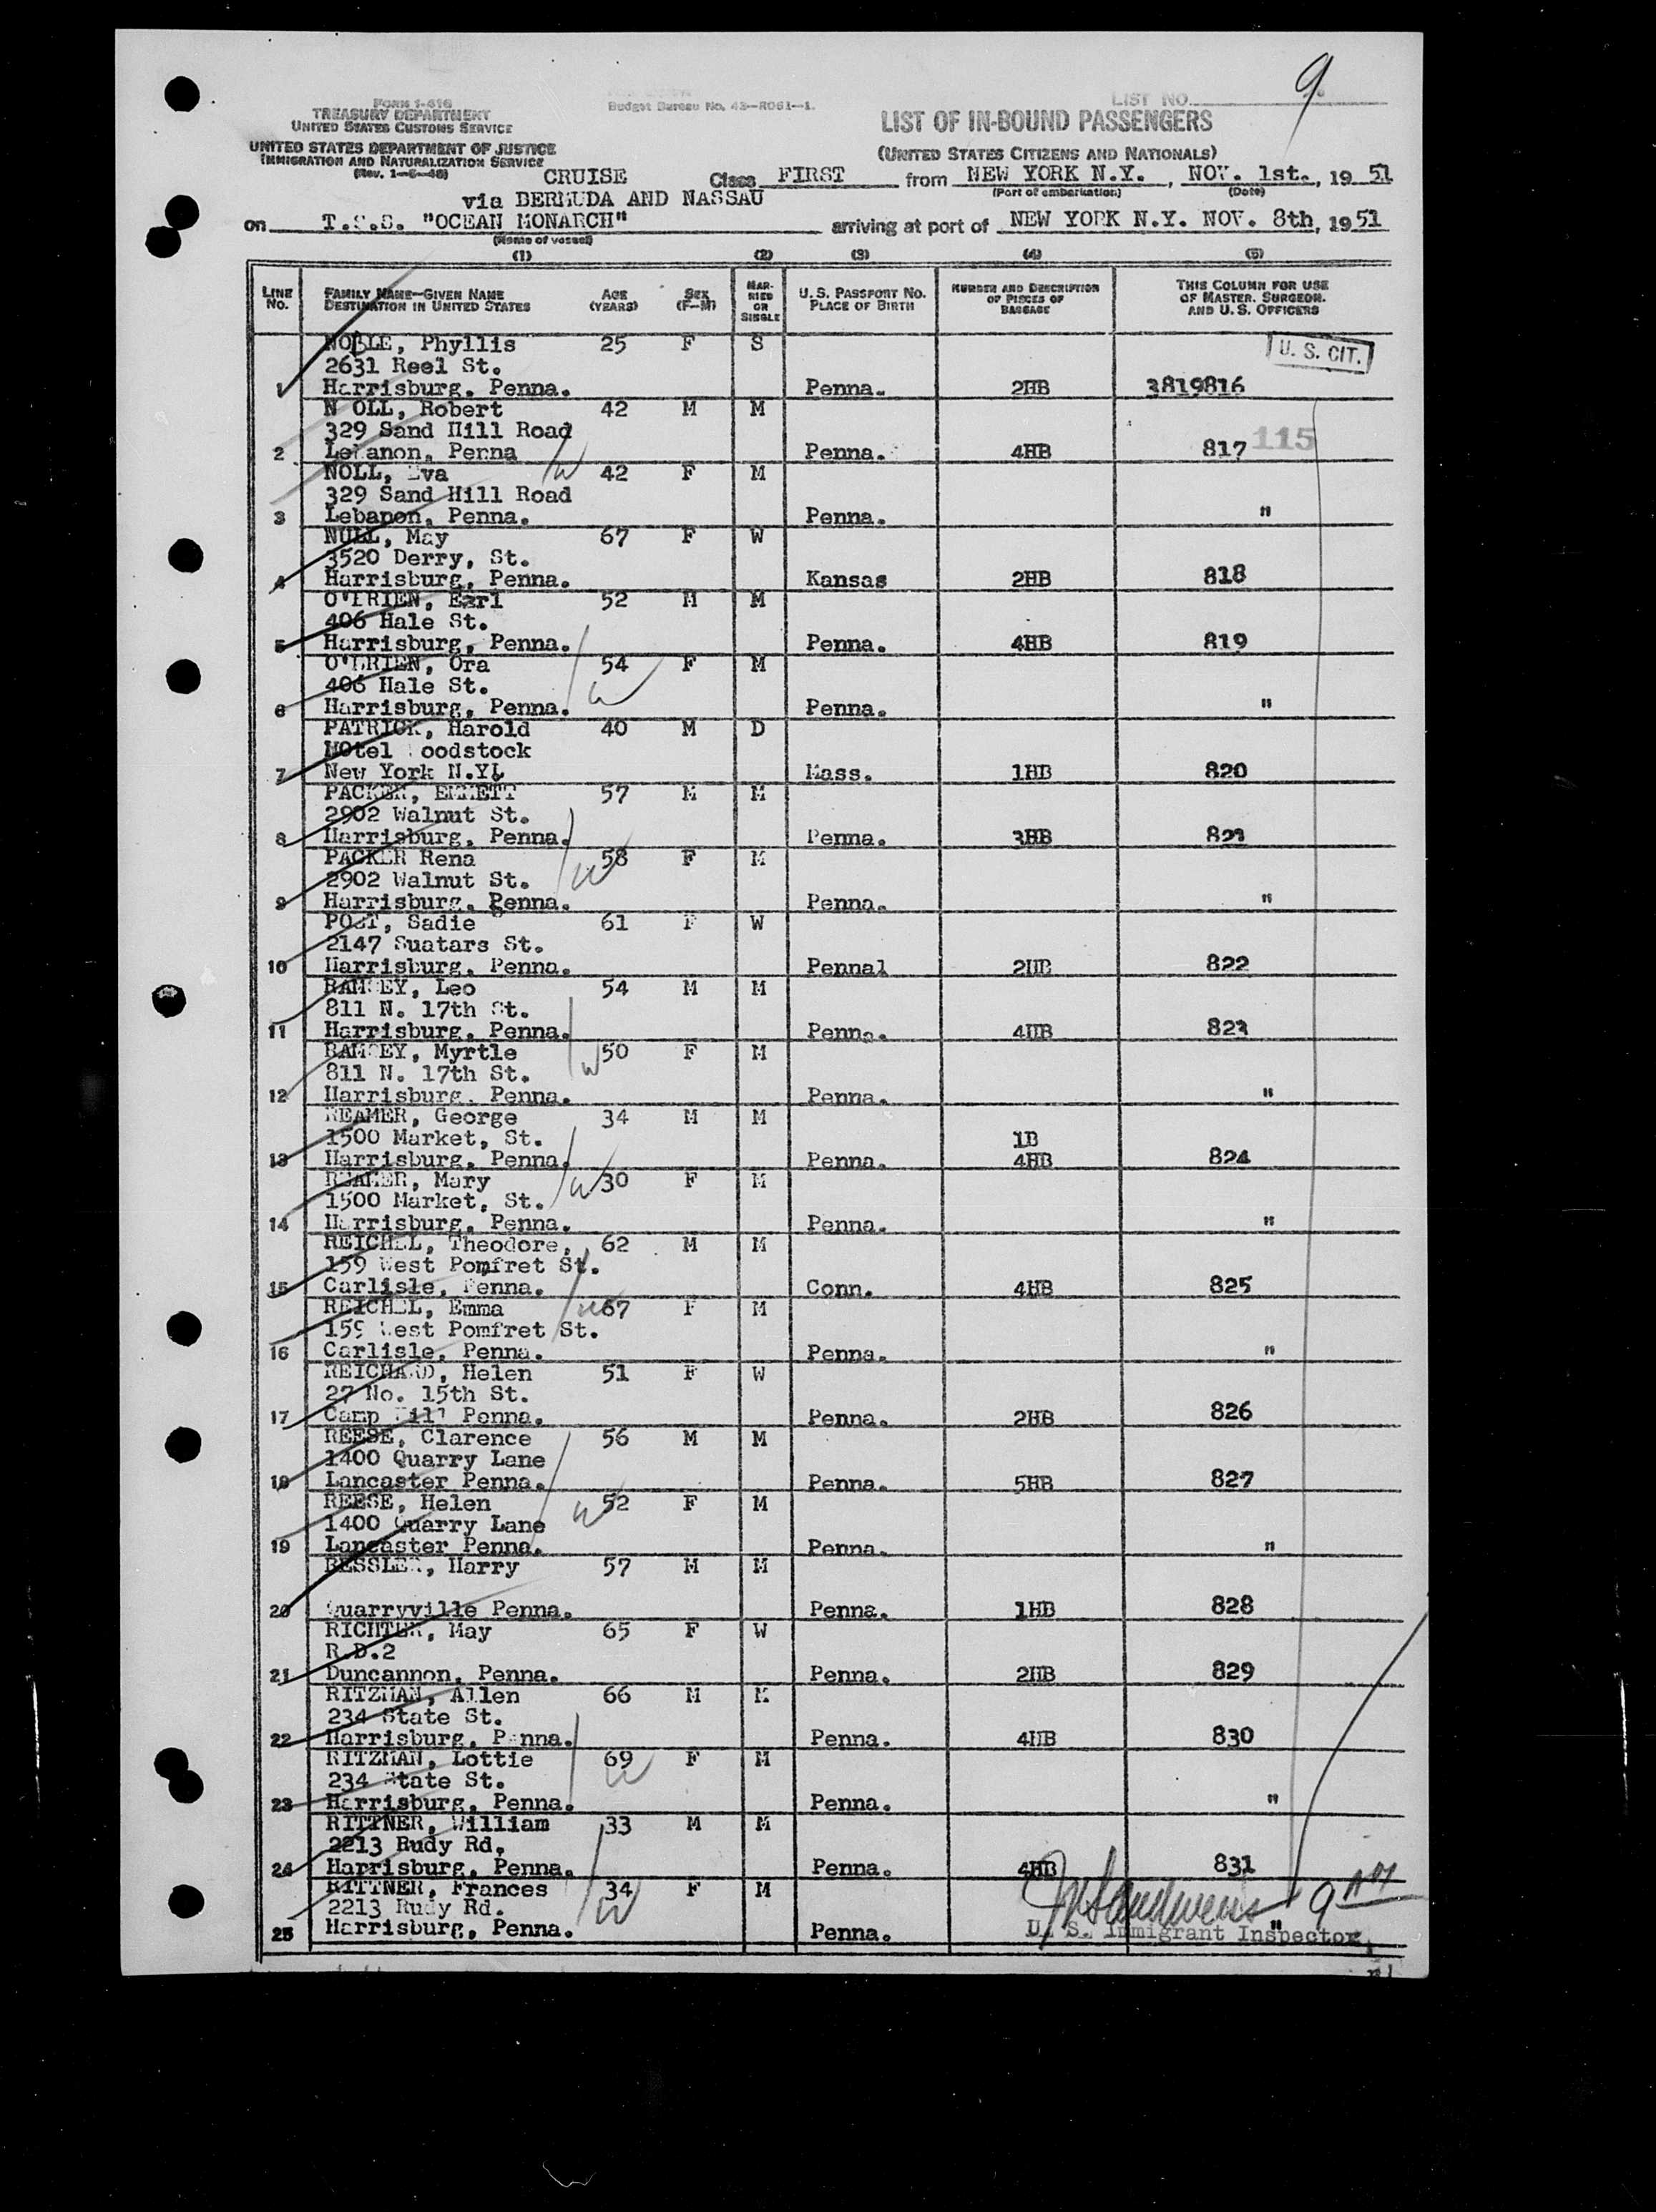 9
FORM I-416
TREASURY DEPARTMENT
UNITED STATES CUSTOMS SERVICE
Budget Bureau No. 43-R061-1.
LIST NO.
LIST OF IN-BOUND PASSENGERS
UNITED STATES DEPARTMENT OF JUSTICE
IMMIGRATION AND NATURALIZATION SERVICE
(UNITED STATES CITIZENS AND NATIONALS)
CRUISE Class FIRST from NEW YORK N.Y., NOV. 1st., 1951
(Port of embarkation) (Date)
via BERMUDA AND NASSAU
on T.S.S. "OCEAN MONARCH" arriving at port of NEW YORK N.Y. NOV. 8th, 1951
(Name of vessel)
(1) (2) (3) (4) (5)
LINE No. FAMILY NAME—GIVEN NAME DESTINATION IN UNITED STATES AGE (YEARS) SEX (F-M) MARRIED OR SINGLE U. S. PASSPORT NO. PLACE OF BIRTH NUMBER AND DESCRIPTION OF PIECES OF BAGGAGE THIS COLUMN FOR USE OF MASTER, SURGEON, AND U. S. OFFICERS
NOBLE, Phyllis 25 F S U. S. CIT.
2631 Reel St.
1 Harrisburg, Penna. Penna. 2HB 3819816
N OLL, Robert 42 M M
329 Sand Hill Road 115
2 Lebanon, Penna Penna. 4HB 817
NOLL, Eva 42 F M
329 Sand Hill Road
3 Lebanon, Penna. Penna. "
NULL, May 67 F W
3520 Derry, St.
4 Harrisburg, Penna. Kansas 2HB 818
O'BRIEN, Earl 52 M M
406 Hale St.
5 Harrisburg, Penna. Penna. 4HB 819
O'BRIEN, Ora 54 F M
406 Hale St.
6 Harrisburg, Penna. Penna. "
PATRICK, Harold 40 M D
Hotel Woodstock
7 New York N.Y. Mass. 1HB 820
PACKER, EMMETT 57 M M
2902 Walnut St.
8 Harrisburg, Penna. Penna. 3HB 821
PACKER Rena 58 F M
2902 Walnut St.
9 Harrisburg, Penna. Penna. "
POST, Sadie 61 F W
2147 Suatars St.
10 Harrisburg, Penna. Pennal 2HB 822
RAMSEY, Leo 54 M M
811 N. 17th St.
11 Harrisburg, Penna. Penna. 4HB 823
RAMSEY, Myrtle 50 F M
811 N. 17th St.
12 Harrisburg, Penna. Penna. "
REAMER, George 34 M M
1500 Market, St. 1B
13 Harrisburg, Penna. Penna. 4HB 824
REAMER, Mary 30 F M
1500 Market, St.
14 Harrisburg, Penna. Penna. "
REICHEL, Theodore, 62 M M
159 West Pomfret St.
15 Carlisle, Penna. Conn. 4HB 825
REICHEL, Emma 67 F M
159 West Pomfret St.
16 Carlisle, Penna. Penna. "
REICHARD, Helen 51 F W
27 No. 15th St.
17 Camp Hill Penna. Penna. 2HB 826
REESE, Clarence 56 M M
1400 Quarry Lane
18 Lancaster Penna. Penna. 5HB 827
REESE, Helen 52 F M
1400 Quarry Lane
19 Lancaster Penna. Penna. "
RESSLER, Harry 57 M M
20 Quarryville Penna. Penna. 1HB 828
RICHTER, May 65 F W
R.D.2
21 Duncannon, Penna. Penna. 2HB 829
RITZMAN, Allen 66 M M
234 State St.
22 Harrisburg, Penna. Penna. 4HB 830
RITZMAN, Lottie 69 F M
234 State St.
23 Harrisburg, Penna. Penna. "
RITTNER, William 33 M M
2213 Rudy Rd,
24 Harrisburg, Penna. Penna. 4HB 831
RITTNER, Frances 34 F M
2213 Rudy Rd. 9
25 Harrisburg, Penna. Penna. "
U. S. Immigrant Inspector